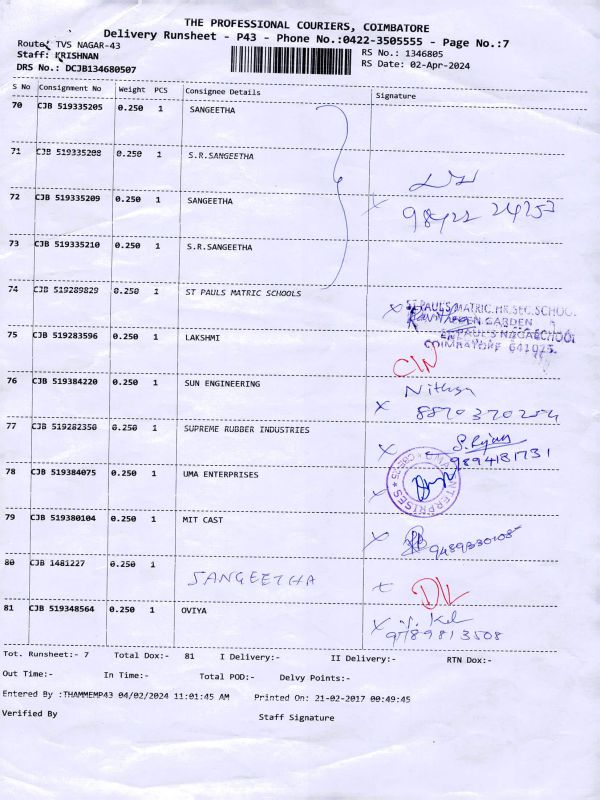 THE PROFESSIONAL COURIERS, COIMBATORE
Delivery Runsheet - P43 - Phone No.:0422-3505555 - Page No.:7
Route: TVS NAGAR-43
Staff: KRISHNAN
DRS No.: DCJB134680507
RS No.: 1346805
RS Date: 02-Apr-2024
S No Consignment No Weight PCS Consignee Details Signature
70 CJB 519335205 0.250 1 SANGEETHA
71 CJB 519335208 0.250 1 S.R.SANGEETHA
72 CJB 519335209 0.250 1 SANGEETHA
73 CJB 519335210 0.250 1 S.R.SANGEETHA
74 CJB 519289829 0.250 1 ST PAULS MATRIC SCHOOLS
ST PAUL'S MATRIC.HR.SEC.SCHOOL
GARDEN
COIMBATORE 641025.
75 CJB 519283596 0.250 1 LAKSHMI
76 CJB 519384220 0.250 1 SUN ENGINEERING
Nithya
77 CJB 519282350 0.250 1 SUPREME RUBBER INDUSTRIES
78 CJB 519384075 0.250 1 UMA ENTERPRISES
ENTERPRISES
79 CJB 519380104 0.250 1 MIT CAST
80 CJB 1481227 0.250 1 SANGEETHA DL
81 CJB 519348564 0.250 1 OVIYA
9789813508
Tot. Runsheet:- 7 Total Dox:- 81 I Delivery:- II Delivery:- RTN Dox:-
Out Time:- In Time:- Total POD:- Delvy Points:-
Entered By :THAMMEMP43 04/02/2024 11:01:45 AM Printed On: 21-02-2017 00:49:45
Verified By Staff Signature